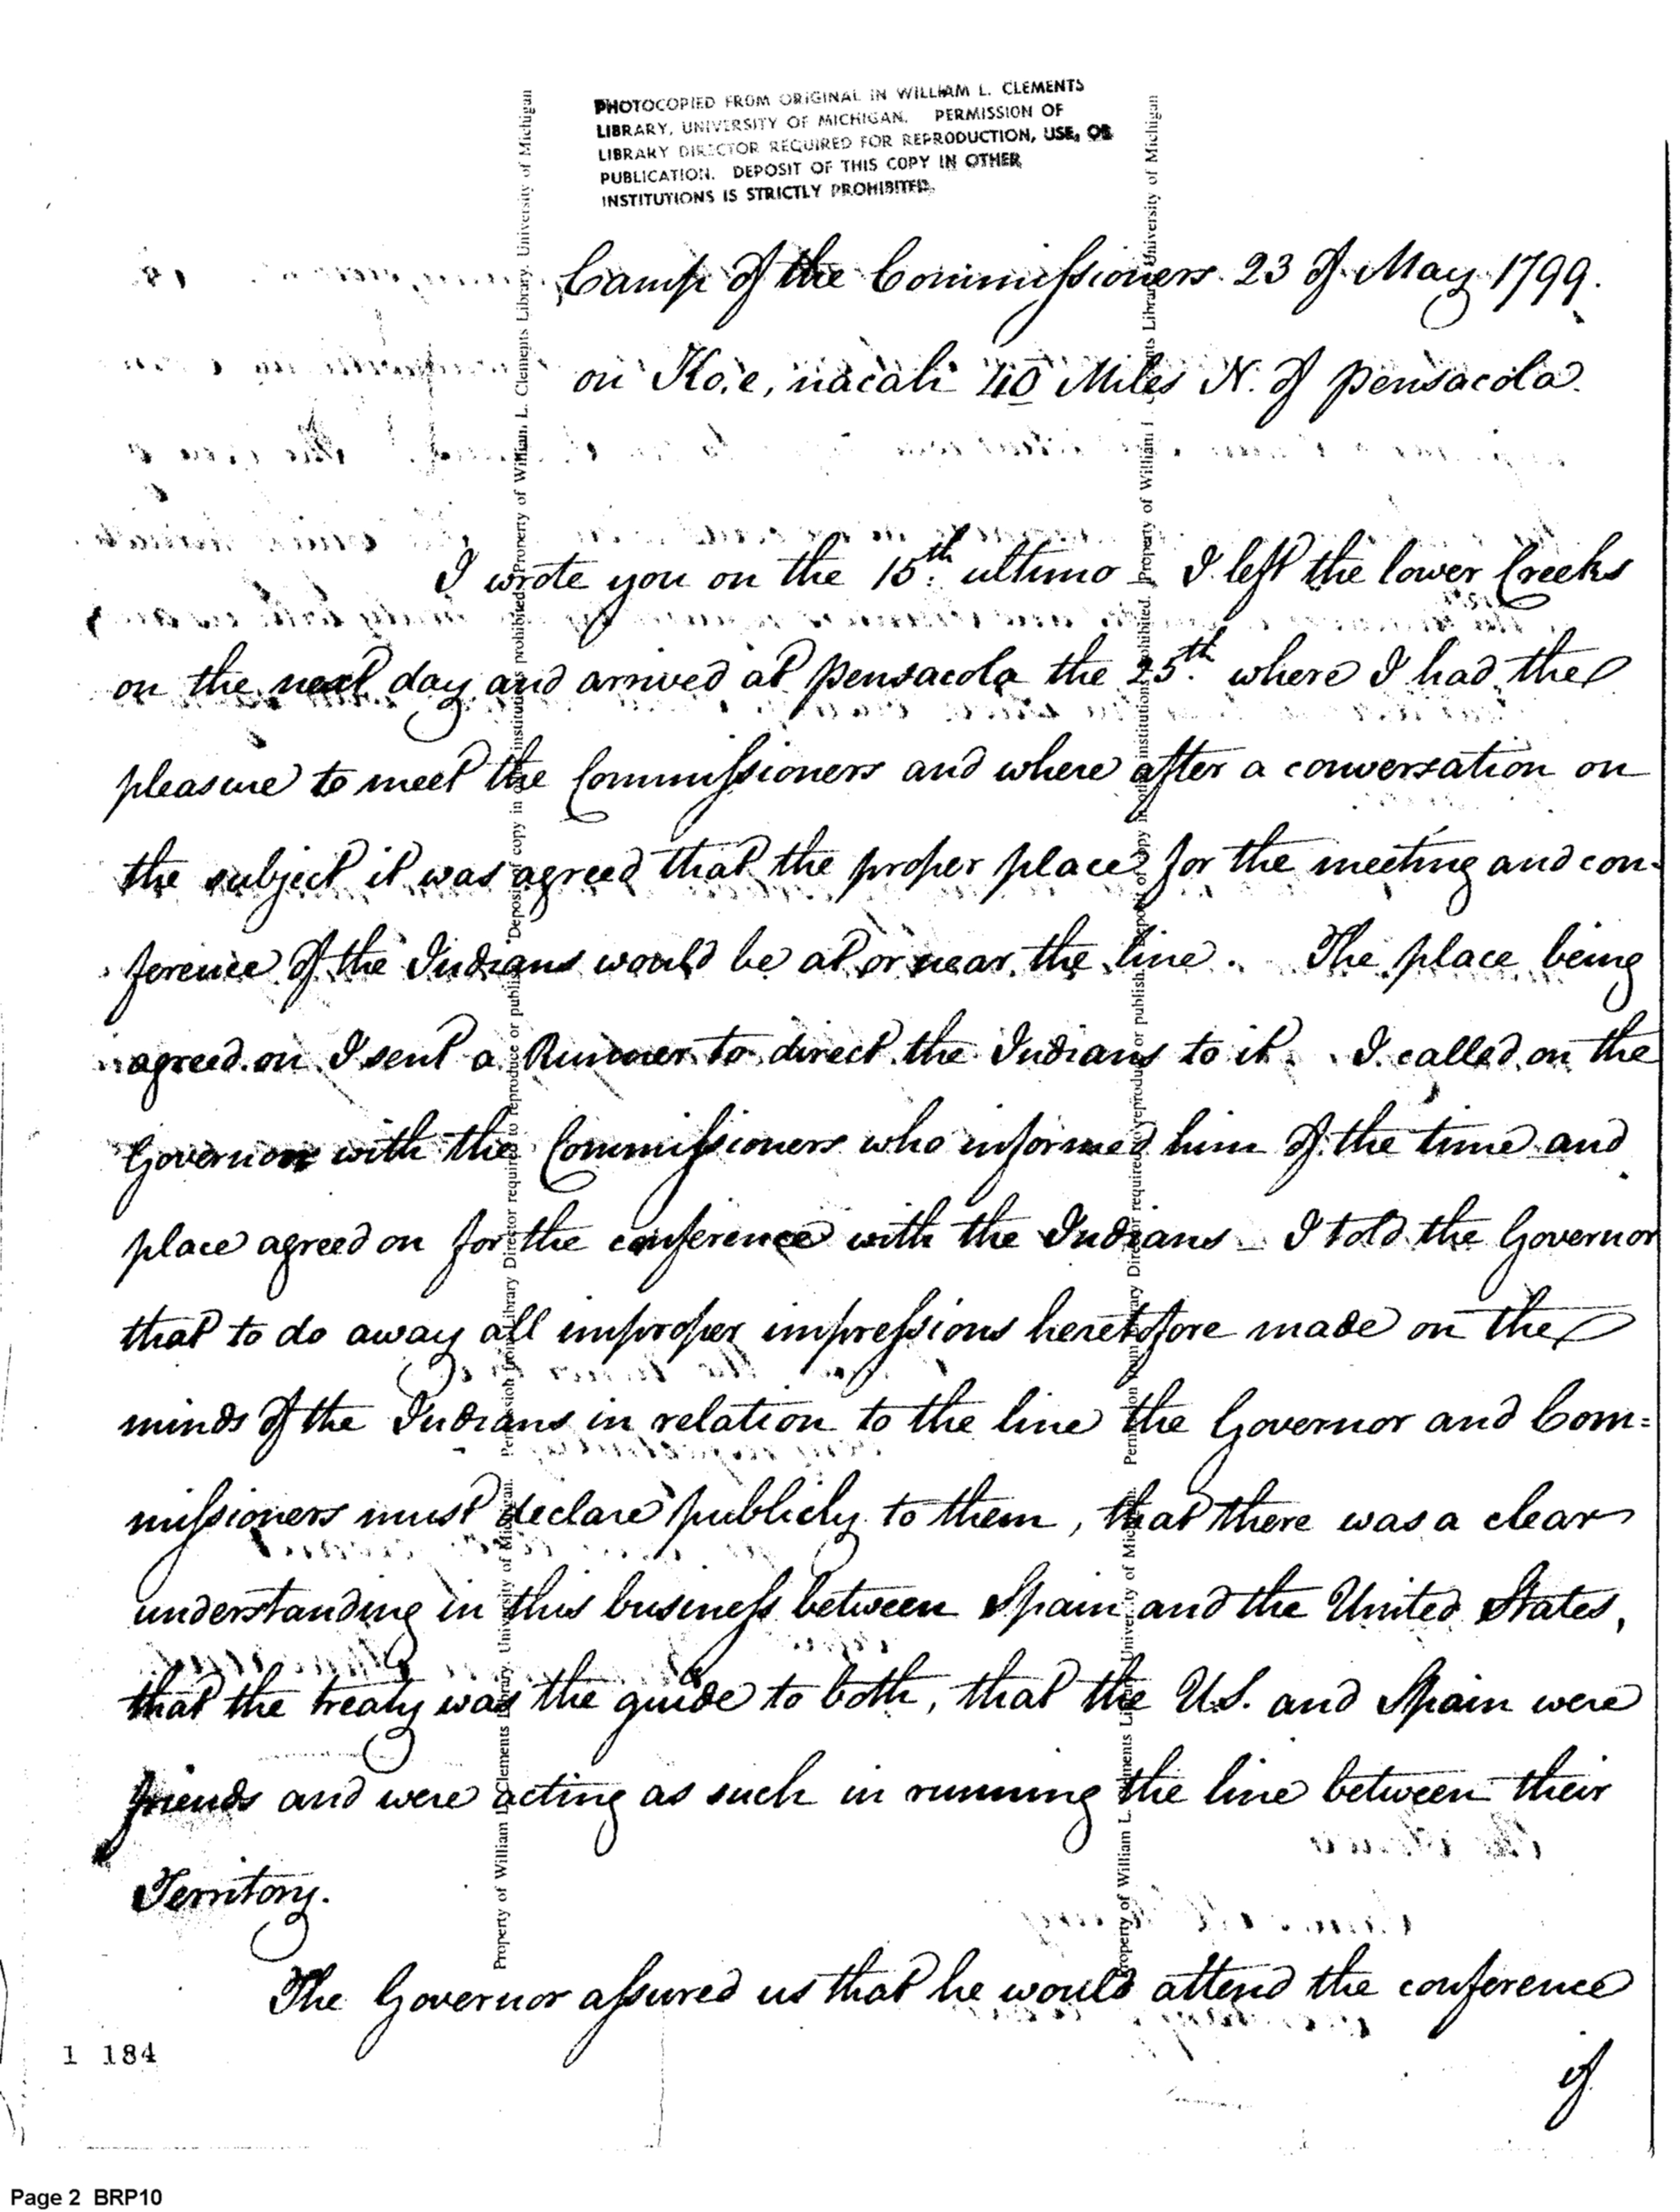 PHOTOCOPIED FROM ORIGINAL IN WILLIAM L. CLEMENTS
LIBRARY, UNIVERSITY OF MICHIGAN. PERMISSION OF
LIBRARY DIRECTOR REQUIRED FOR REPRODUCTION, USE, OR
PUBLICATION. DEPOSIT OF THIS COPY IN OTHER
INSTITUTIONS IS STRICTLY PROHIBITED.
Camp of the Commissioners 23 of May 1799.
on Ko,e,nacali 40 Miles N. of pensacola.
I wrote you on the 15th. ultimo _ I left the lower Creeks
on the next day and arrived at pensacola the 25th. where I had the
pleasure to meet the Commissioners and where after a conversation on
the subject it was agreed that the proper place for the meeting and con-
ference of the Indians would be at or near the line. The place being
agreed on I sent a Runner to direct the Indians to it. I called on the
Governor with the Commissioners who informed him of the time and
place agreed on for the conference with the Indians _ I told the Governor
that to do away all improper impressions heretofore made on the
minds of the Indians in relation to the line the Governor and Com=
missioners must declare publicly to them, that there was a clear
understanding in this business between Spain and the United States,
that the treaty was the guide to both, that the U.S. and Spain were
friends and were acting as such in running the line between their
Territory.
The Governor assured us that he would attend the conference
if
1 184
Page 2 BRP10
Property of William L. Clements Library, University of Michigan. Permission from Library Director required to reproduce or publish. Deposit of copy in other institutions prohibited. Property of William L. Clements Library, University of Michigan
Property of William L. Clements Library, University of Michigan. Permission from Library Director required to reproduce or publish. Deposit of copy in other institutions prohibited. Property of William L. Clements Library, University of Michigan